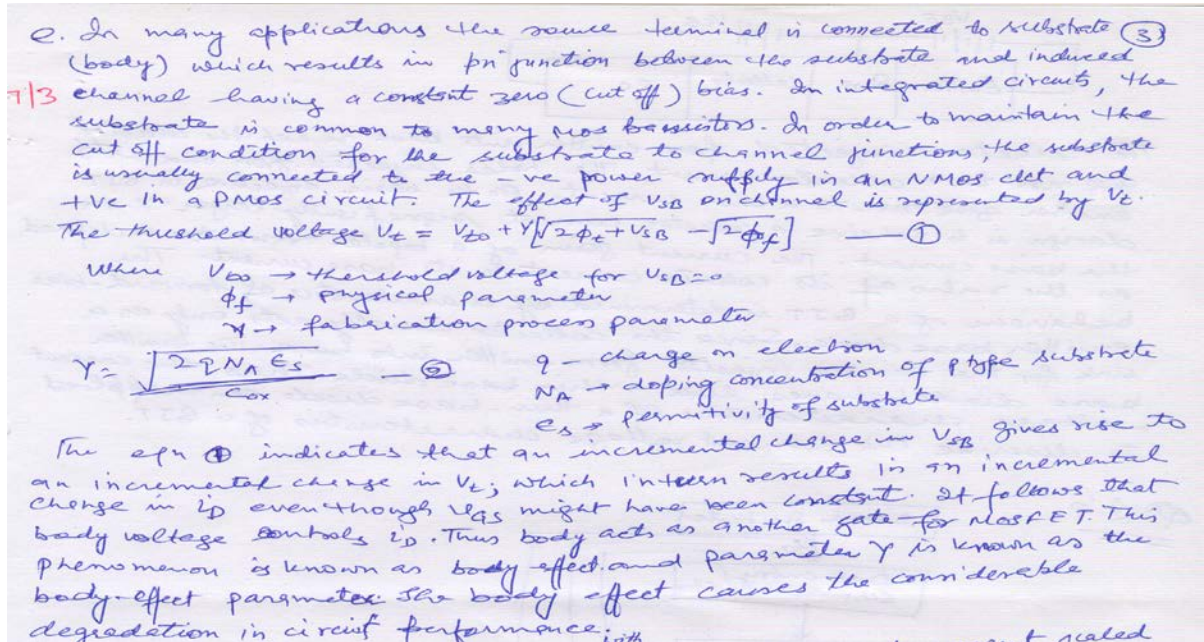 e. In many applications the source terminal is connected to substrate ③
(body) which results in pn junction between the substrate and induced
7/3 channel having a constant zero (cut off) bias. In integrated circuits, the
substrate is common to many MOS transistors. In order to maintain the
cut off condition for the substrate to channel junctions, the substrate
is usually connected to the -ve power supply in an NMOS ckt and
+ve in a PMOS circuit. The effect of VSB on channel is represented by Vt.
The threshold voltage Vt = Vt0 + γ[√2φf + VSB - √2φf] — ①
Where Vt0 → thershold voltage for VSB=0
φf → physical parameter
γ → fabrication process parameter
γ = √2qNA Es / Cox — ② q - charge on electron
NA → doping concentration of ptype substrate
Es → permitivity of substrate
The eqn ① indicates that an incremental change in VSB gives rise to
an incremental change in Vt; which inturn results in an incremental
change in iD eventhough VGS might have been constant. It follows that
body voltage controls iD. Thus body acts as another gate for MOSFET. This
phenomenon is known as body effect and parameter γ is known as the
body-effect parameter. The body effect causes the considerable
degradation in circuit performance.
with scaled